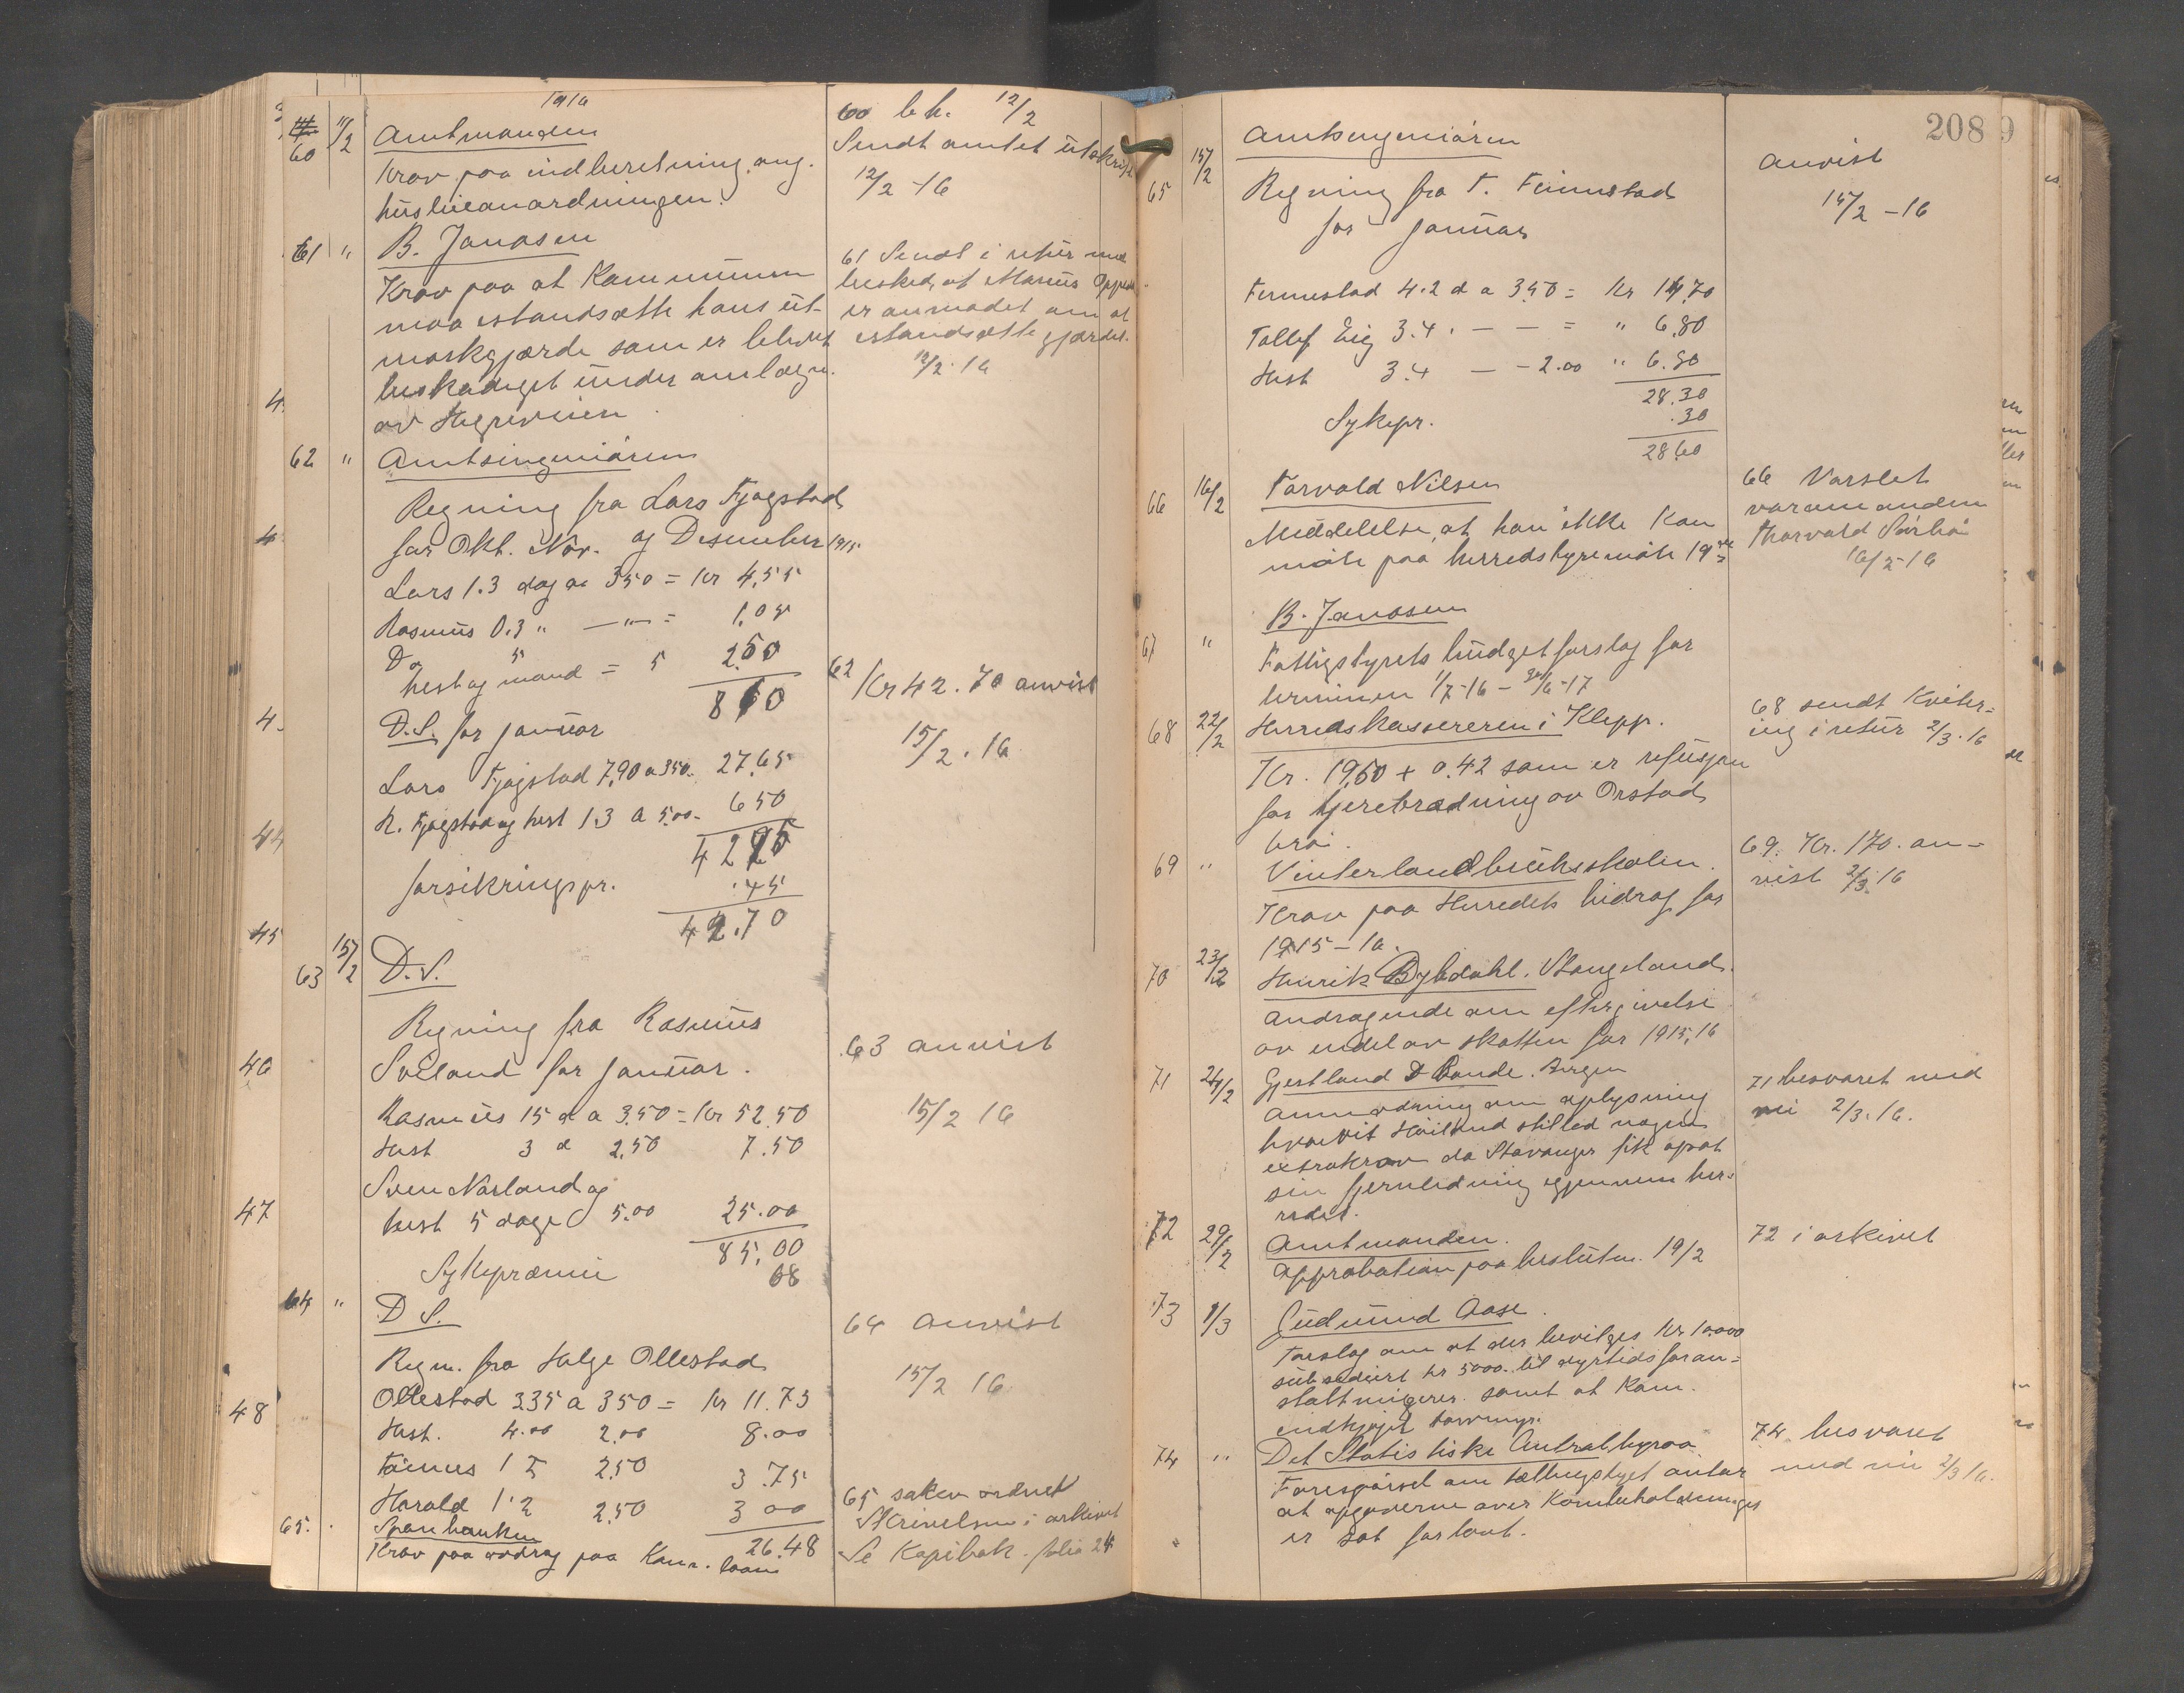 1916
60 11/2 Amtmanden
Krav paa indberetning ang.
huslieanordningen.
60 b.k. 12/2
Sendt amtet utskrift
12/2 -16
61 " B. Jonasen
Krav paa at Kommunen
maa istandsætte hans ut-
marksgjærde som er blevet
beskadiget under anlægn.
av Hegreveien
61 Sendt i retur med
besked, at Marius
er anmodet om at
istandsætte gjærdet.
12/2.16
62 " Amtsingeniören
Regning fra Lars Fjogstad
for Okt. Nov. og Desember 1915
Lars 1.3 dag a 350 = Kr 4,55
Rasmus 0.3 " — " — = 1,05
Do
hest og mand = 5 2.50
8 10
D.S. for januar
Lars Fjogstad 7,90 a 350 27,65
R. Fjogstad og hest 1.3 a 5.00 - 6 50
42 25
forsikringspr. .45
42.70
62 Kr 42.70 anvist
15/2.16
63 15/2 D.S.
Regning fra Rasmus
Sviland for januar.
Rasmus 15 d a 3.50 = Kr 52.50
Hest 3 a 2,50 7.50
Sven Norland og
hest 5 dage 5.00 25.00
85,00
Sykepræmie 68
63 anvist
15/2 16
64 " D S.
Regn. fra Helge Ollestad
Ollestad 335 a 350 = Kr 11.73
Hest. 4.00 2.00 8.00
Tønnes 1 ½ 2,50 3.75
Harald 1.2 2.50 3 00
26.48
64 anvist
15/2 16
65. Sparebanken
Krav paa avdrag paa Kom. laan
65 saken ordnet
Skrivelsen i arkivet
Se Kopibok. folio 24
208
65 15/2 Amtsingeniören
Regning fra T. Finnestad
for januar
Finnestad 4.2 d a 3.50 = Kr 14,70
Tollef Eig 3.4. — — = " 6,80
Hest 3.4 — - 2.00 " 6.80
28.30
Sykepr. .30
28.60
anvist
15/2 -16
66 16/2 Torvald Nilsen
Meddelelse, at han ikke kan
möte paa herredstyremöte 19de
66 Varslet
varamanden
Thorvald
16/2-16
67 " B. Jonasen
Fattigstyrets budgetforslag for
terminen 1/7-16 - 30/6-17
68 22/2 Herredskassereren i Klepp.
Kr. 19,60 + 0.42 som er refusjon
for tjerebredning av Orstad
bro.
68 sendt Kviter=
ing i retur 2/3.16
69 " Vinterlandbruksskolen.
Krav paa Herredets bidrag for
1915-16.
69. Kr. 170. an-
vist 2/3.16
70 23/2 Henrik Bybdahl. Stangeland.
Andragende om eftergivelse
av endel av skatten for 1915,16
71 24/2 Gjestland & Bonde. Bergen
Anmodning om oplysning
hvorvit Höiland stilled nogen
extrakrav da Stavanger fik oprat
sin fjernledning igjennem her-
redet.
71 besvaret med
nei 2/3.16.
72 29/2 Amtmanden.
Approbation paa beslutn. 19/2
72 i arkivet
73 1/3 Gudmund Aase.
Forslag om at der bevilges Kr 10,000
subsediert kr 5000. til dyrtidsforan=
staltninger. samt at Kom.
indkjøpt torvmyr.
74 " Det Statistiske Centralbyraa
Forespörsel om antar
at opgaverne over Kornbeholdninger
er sat for lavt.
74 besvaret
med nei 2/3 16.
4.
4
4.
44
45
46
47
48